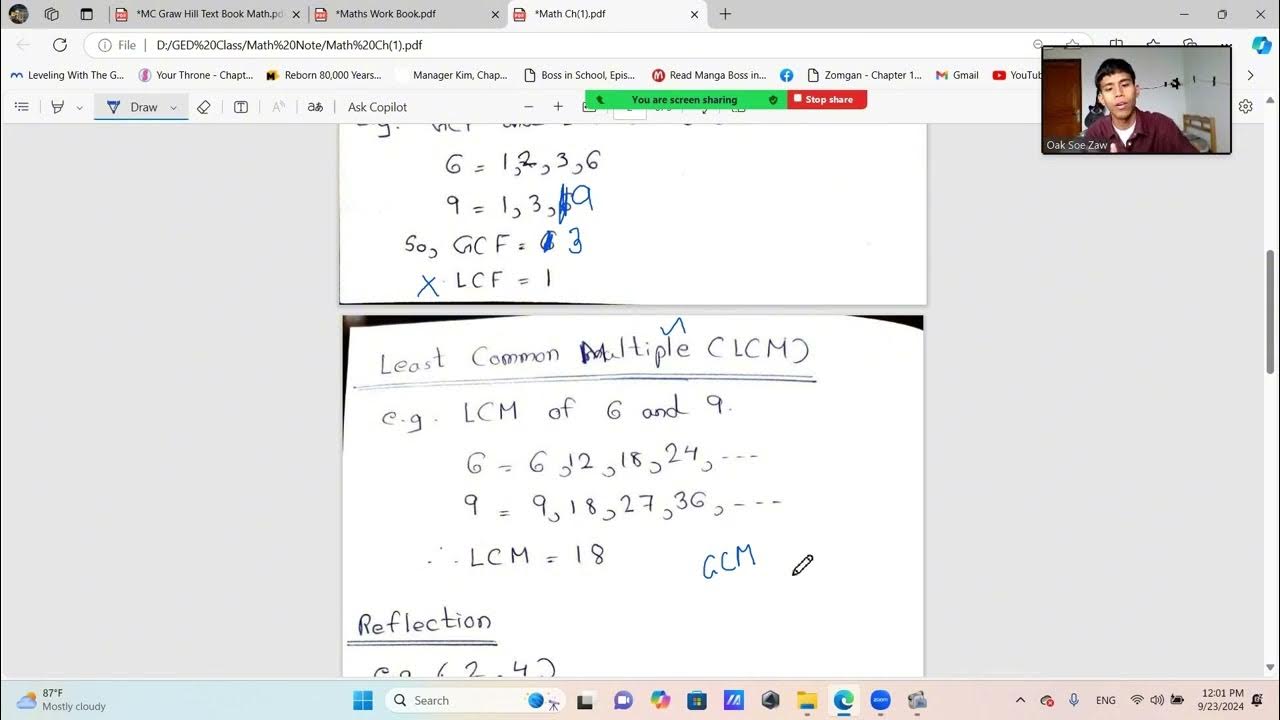 *MC Graw Hill Text Book Math.pd
*Maths Work Book.pdf
*Math Ch(1).pdf
File
D:/GED%20Class/Math%20Note/Math%20Ch(1).pdf
Leveling With The G...
Your Throne - Chapt...
Reborn 80,000 Years...
Manager Kim, Chap...
Boss in School, Epis...
Read Manga Boss in...
Zomgan - Chapter 1...
Gmail
YouTub
Draw
Ask Copilot
You are screen sharing
Stop share
Oak Soe Zaw
6 = 1,2,3,6
9 = 1,3,9
So, GCF = 3
X LCF = 1
Least Common Multiple (LCM)
e.g. LCM of 6 and 9.
6 = 6,12,18,24,---
9 = 9,18,27,36,---
∴ LCM = 18
GCM
Reflection
e.g (2,4)
87°F
Mostly cloudy
Search
ENG
12:01 PM
9/23/2024